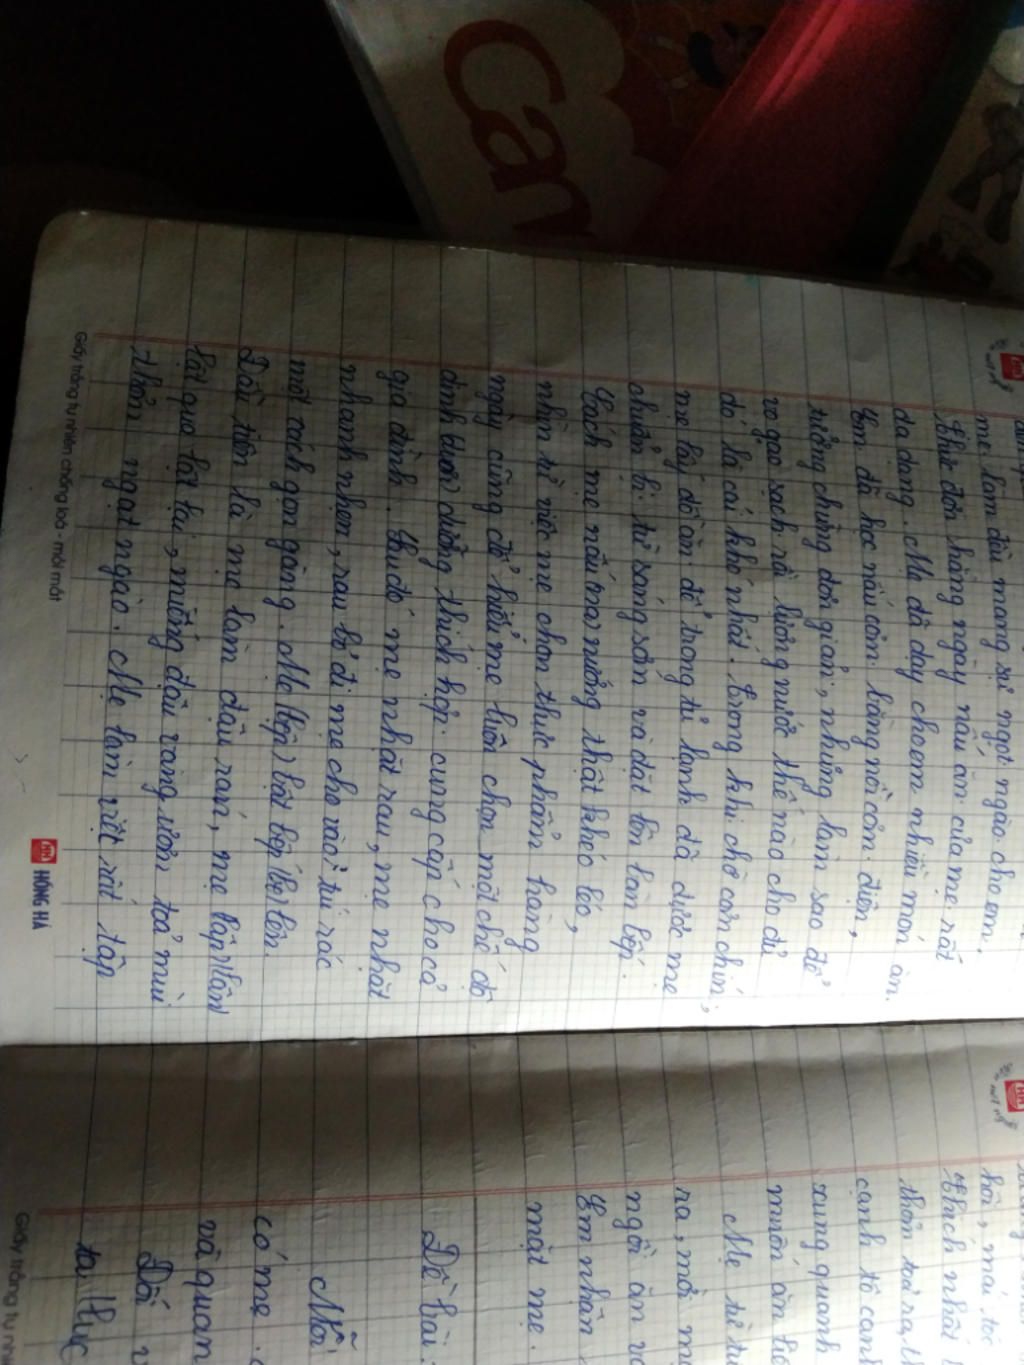 Can
mẹ làm đều mang sự ngọt ngào cho em.
thực đơn hằng ngày nấu ăn của mẹ rất
đa dạng. Mẹ đã dạy cho em nhiều món ăn.
Em đã học nấu cơm bằng nồi cơm điện,
tưởng chừng đơn giản, nhưng làm sao để
vo gạo sạch rồi lường nước thế nào cho đủ
đó là cái khó nhất. Trong khi chờ cơm chín,
mẹ lấy đồ ăn để trong tủ lạnh đã được mẹ
chuẩn bị từ sáng sớm và đặt lên bàn bếp.
Cách mẹ nấu nướng thật khéo léo,
nhìn từ việc mẹ chọn thực phẩm hàng
ngày cũng đủ hiểu mẹ luôn chọn một chế độ
dinh dưỡng thích hợp cung cấp cho cả
gia đình. Mẹ nhặt rau, mẹ nhặt
nhanh nhẹn, rau bỏ đi mẹ cho vào túi rác
một cách gọn gàng. Mẹ bật bếp lên.
Đầu tiên là mẹ làm đậu rán, mẹ
lật qua lật lại, miếng đậu vàng ươm toả mùi
thơm ngọt ngào. Mẹ làm việc rất tập
Giấy trắng tự nhiên chống loá - mỏi mắt
HỒNG HÀ
thích nhất
thơm toả ra,
cạnh tô canh
xung quanh
muốn ăn
Mẹ từ từ
ra, mời
ngồi ăn
Em nhận
mặt mẹ.
Đề bài:
Mỗi
có mẹ.
và quan
Đối
Giấy trắng tự